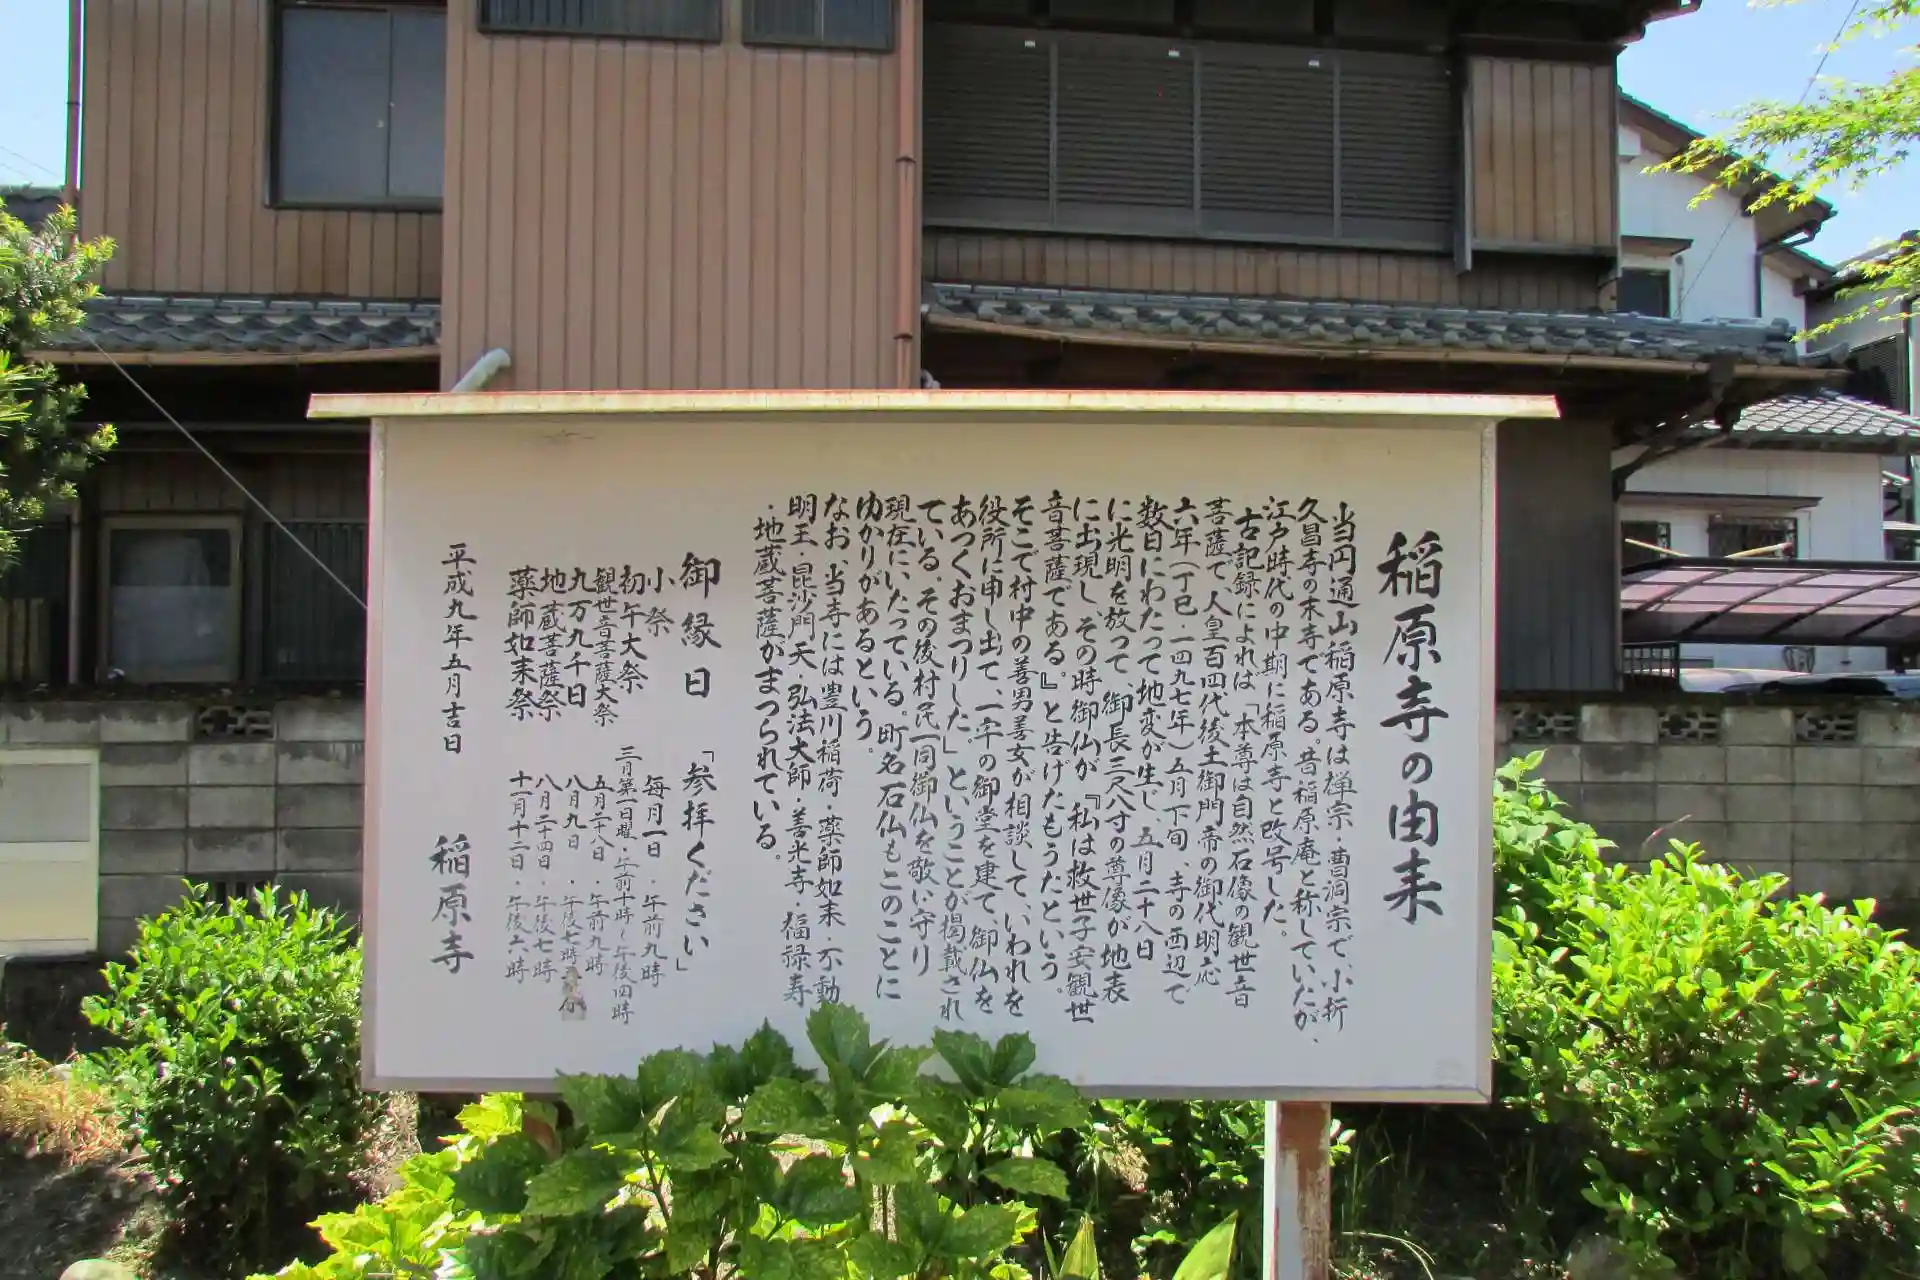 稲原寺の由来
当円通山稲原寺は禅宗・曹洞宗で、小折
久昌寺の末寺である。昔稲原庵と称していたが、
江戸時代の中期に稲原寺と改号した。
古記録によれば「本尊は自然石像の観世音
菩薩で、人皇百四代後土御門帝の御代明応
六年(丁巳・一四九七年)五月下旬、寺の西辺で
数日にわたって地変が生じ、五月二十八日
に光明を放って御長三尺八寸の尊像が地表
に出現し、その時御仏が『私は救世子安観世
音菩薩である。』と告げたもうたという。
そこで村中の善男善女が相談して、いわれを
役所に申し出て、一宇の御堂を建て、御仏を
あつくおまつりした。」ということが掲載され
ている。その後村民一同御仏を敬い守り
現在にいたっている。町名石仏もこのことに
ゆかりがあるという。
なお、当寺には豊川稲荷・薬師如来・不動
明王・昆沙門天・弘法大師・善光寺・福禄寿
・地蔵菩薩がまつられている。
御縁日 「参拝ください」
小祭 毎月一日・午前九時
初午大祭 三月第一日曜・午前十時~午後四時
観世音菩薩大祭 五月二十八日・午前九時
九万九千日 八月九日・午後七時
地蔵菩薩祭 八月二十四日・午後七時
薬師如来祭 十一月十二日・午後六時
平成九年五月吉日 稲原寺